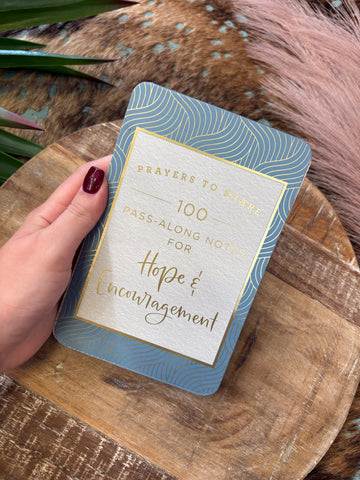 PRAYERS TO SHARE
100
PASS-ALONG NOTES
FOR
Hope &
Encouragement